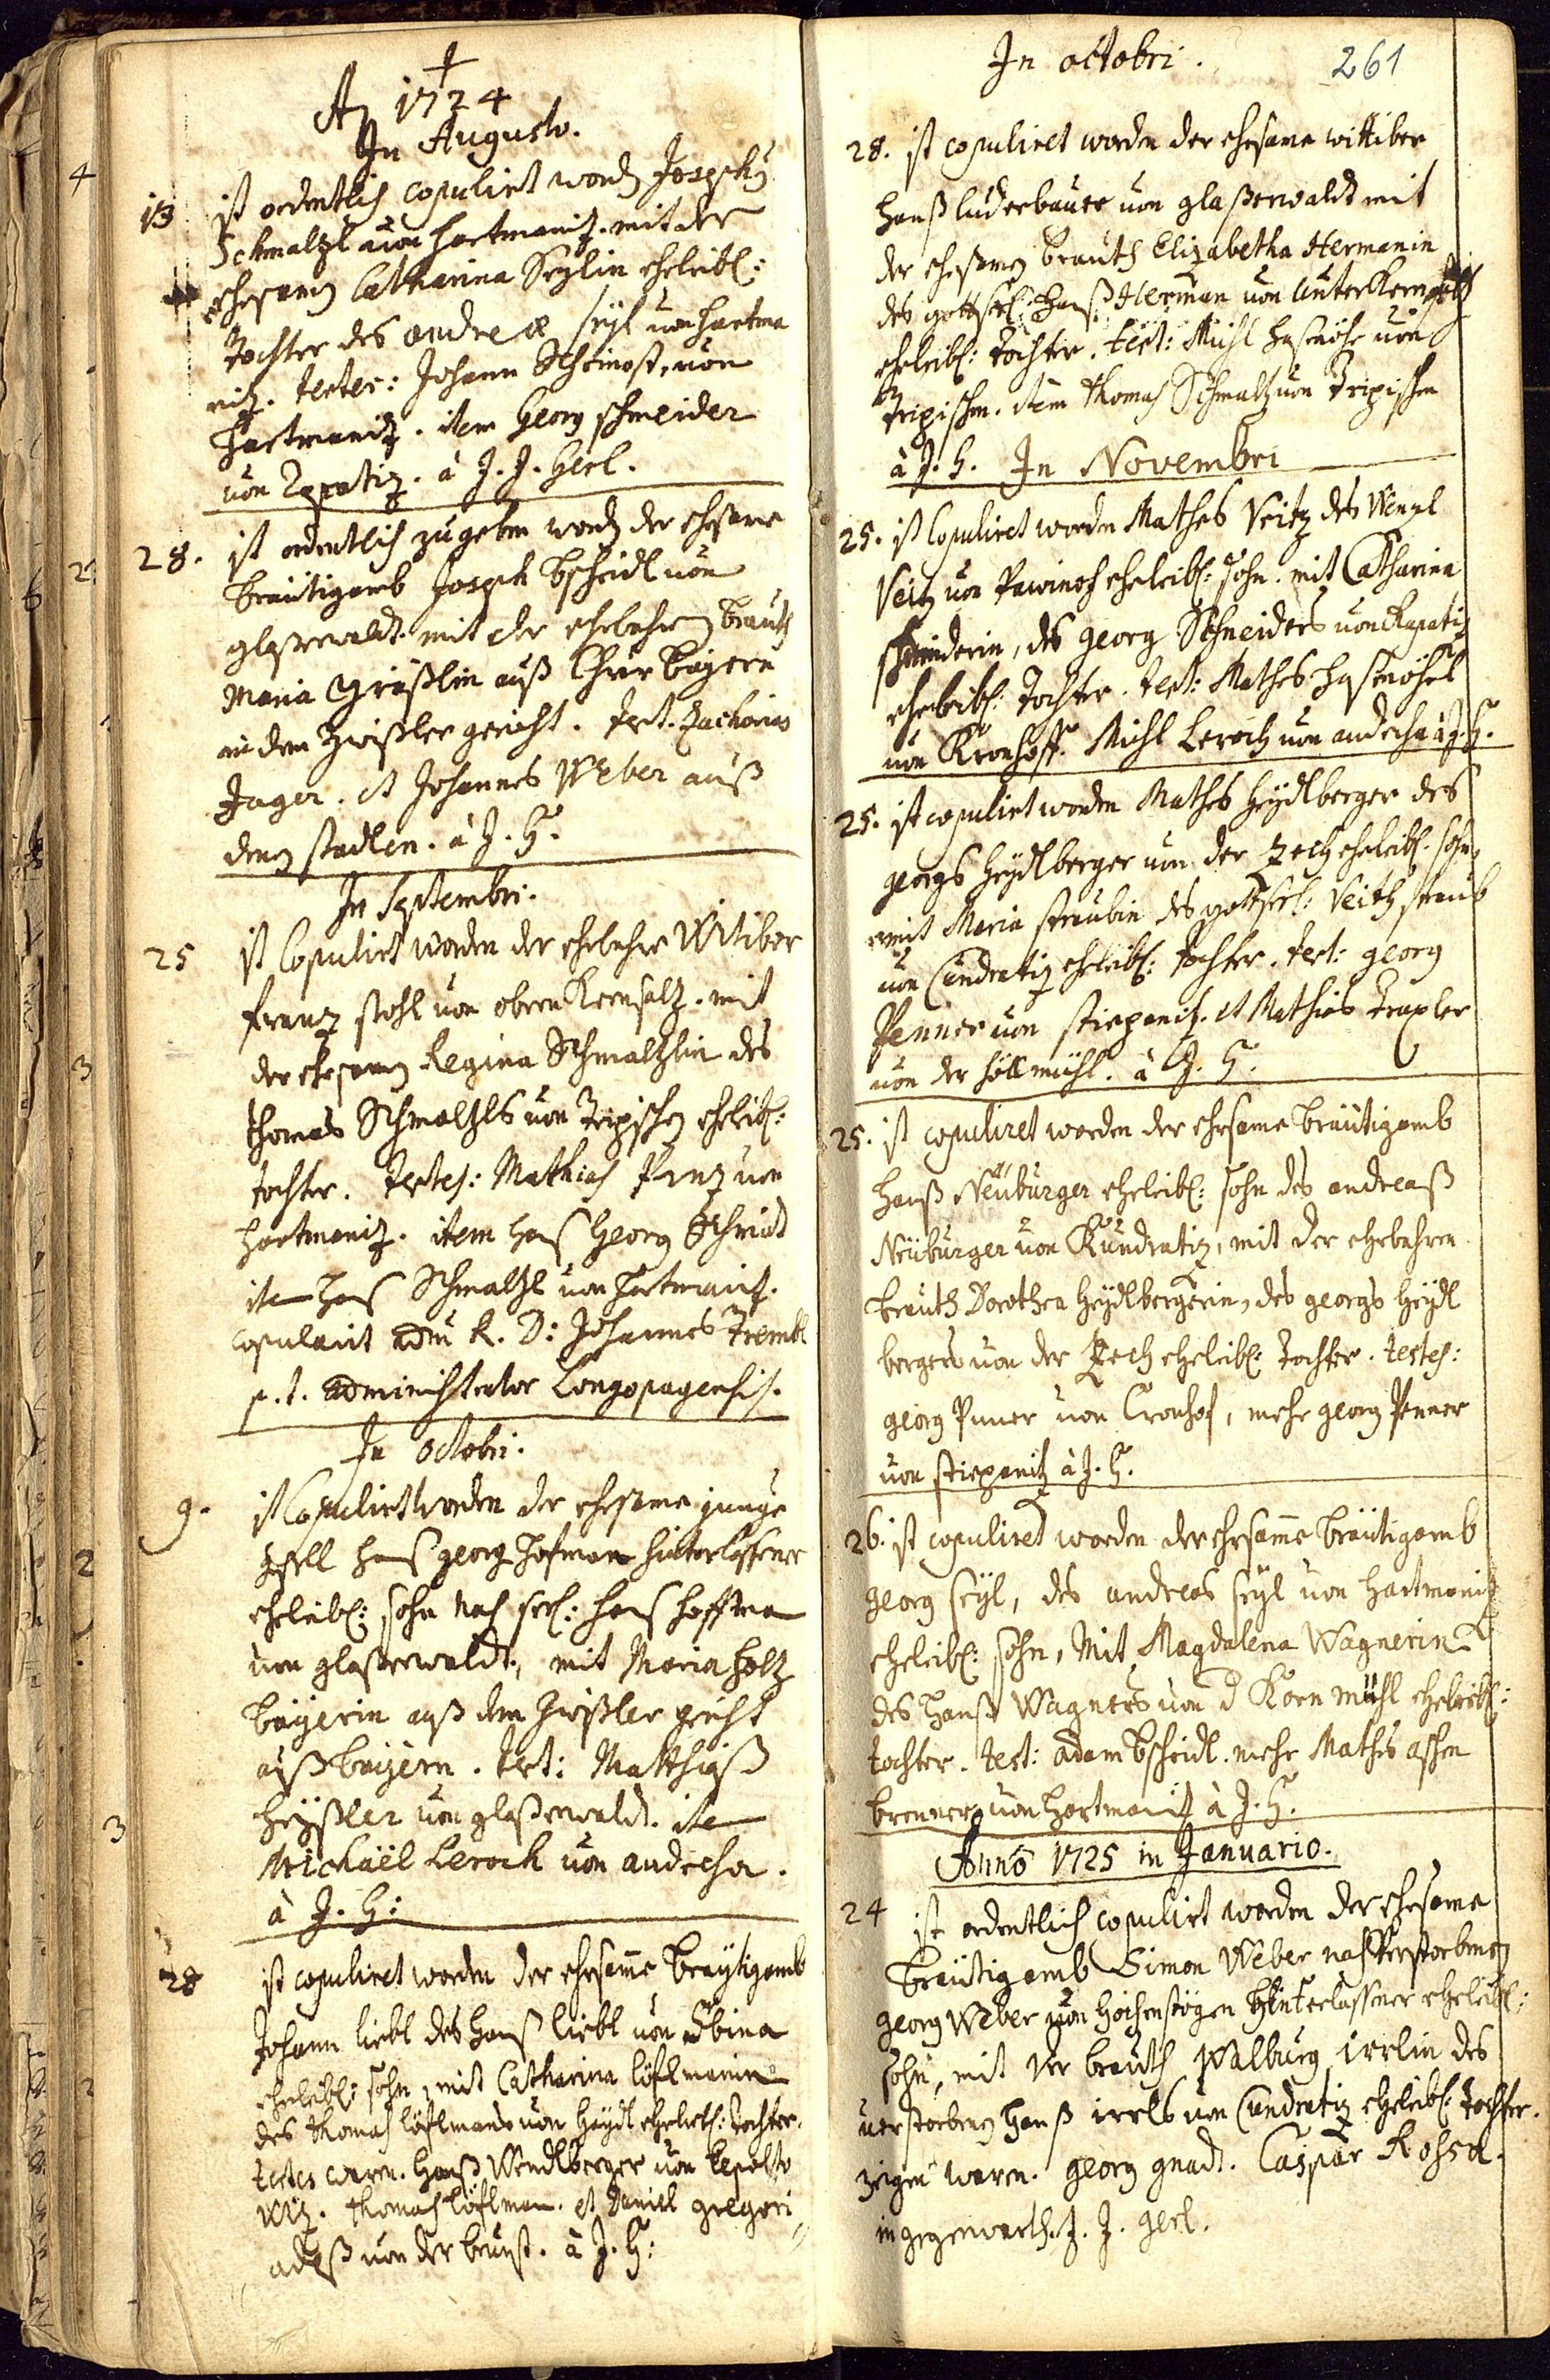 A 1724
In Augusto.
13 ist ordentlich copulirt word Joseph
Schmaltzl von Hartmanitz. mit der
ehesamen Catharina Seylin eheleibl:
Tochter des andreæ seyl von Hartma
nitz. testes: Johann von
Hartmanitz. item Georg schneider
von à J. J. Gerl.
28. ist ordentlich zugeben word der ehesame
bräutigamb Joseph Bscheidl von
glaßerwaldt. mit der ehrbahren brauth
Maria auß Chur Baÿern
in dem Zwißler gericht. test. Zacharias
Jager. et Johannes Weber auß
denen stadlen. à J. G.
In Septembri.
25 ist Copulirt worden der ehrbahre Witiber
frantz stohl von obern Kernsaltz. mit
der ehesamen Regina Schmaltzlin des
thomas Schmaltzls von Tripischen eheleibl:
tochter. Testes: Mathias von
Hartmanitz. item Hans Georg Schmid
item Hans Schmaltzl von Hartmanitz.
copulavit adm R. D: Johannes Trembl
p. t. administrator Longopagensis.
In octobri.
9. ist Copulirt worden der ehesame junge
gsell Hans georg Hofman hinterlassener
eheleibl: sohn nach seel: Hans Hoffman
von glaßerwaldt, mit Maria Holtz
baÿerin auß dem Zwißler gericht
auß baÿern. test: Matthiaß
Heyßler von glaßerwaldt. item
Michäel Leroch von andreha.
à J. G:
28 ist copuliret worden der ehesame Bräytigamb
Johann liebl des Hanß liebl von
eheleibl: sohn, mit Catharina löflmanin
des thomas löflmans von Haydl eheleibl: tochter.
testes waren. Hanß Wendlberger von
witz. thomas löflman. et Daniel gregori
von der brunst. à J. G:
In octobri.
261
28. ist copuliret worden der ehesame wittiber
Hanß luderbauer von glaßerwaldt mit
der ehesamen brauth Elizabetha Hermanin
des gottseel: Hanß Herman von unter Kernsaltz
eheleibl: tochter. test: Michl Hasenöhr von
Tripischen. item thomas Schmaltz von Tripischen
à J. G. In Novembri
25. ist Copuliret worden Mathes Veitz des Wenzl
Veitz von Pawinof eheleibl: sohn. mit Catharina
schneiderin, des georg Schneiders von Kapatitz
eheleibl: Tochter. test: Mathes Hasenöhrl
von Kronhoff. Michl Leroch von andreha à J. G.
25. ist copulirt worden Mathes Heydlberger des
georgs Heydlberger von der Zech eheleibl: sohn,
mit Maria straubin des gottseel: Veith straub
von Cundratiz eheleibl: tochter. test: georg
Penner von stiepanitz. et Mathias Traxler
von der höllmühl. à J. G.
25. ist copuliret worden der ehesame bräutigamb
Hanß Neüburger eheleibl: sohn des andreaß
Neüburger von Kundratiz, mit der ehrbahren
brauth Dorothea Heydlbergerin, des georgs Heydl
bergers von der Zech eheleibl: tochter. testes:
georg von Cronhof, mehr georg Penner
von stiepanitz à J. G.
26. ist copuliret worden der ehesame bräutigamb
georg seÿl, des andreas seÿl von Hartmanitz
eheleibl: sohn, Mit Magdalena Wagnerin
des Hanß Wagners von d Korn mühl eheleibl:
tochter. test: adam Bscheidl. mehr Mathes aschen
brenner von Hartmanitz à J. G.
Anno 1725 in Januario.
24 ist ordentlich copulirt worden der ehesame
bräutigamb Simon Weber nach verstorbenen
georg Weber von Höchenstögen Hinterlassner eheleibl:
sohn, mit der brauth Walburg irrlin des
verstorbenen Hanß irrls von Cundratiz eheleibl: tochter.
zeigen waren. georg gnadt. Caspar Rossa.
in gegenwarth J. J. gerl.